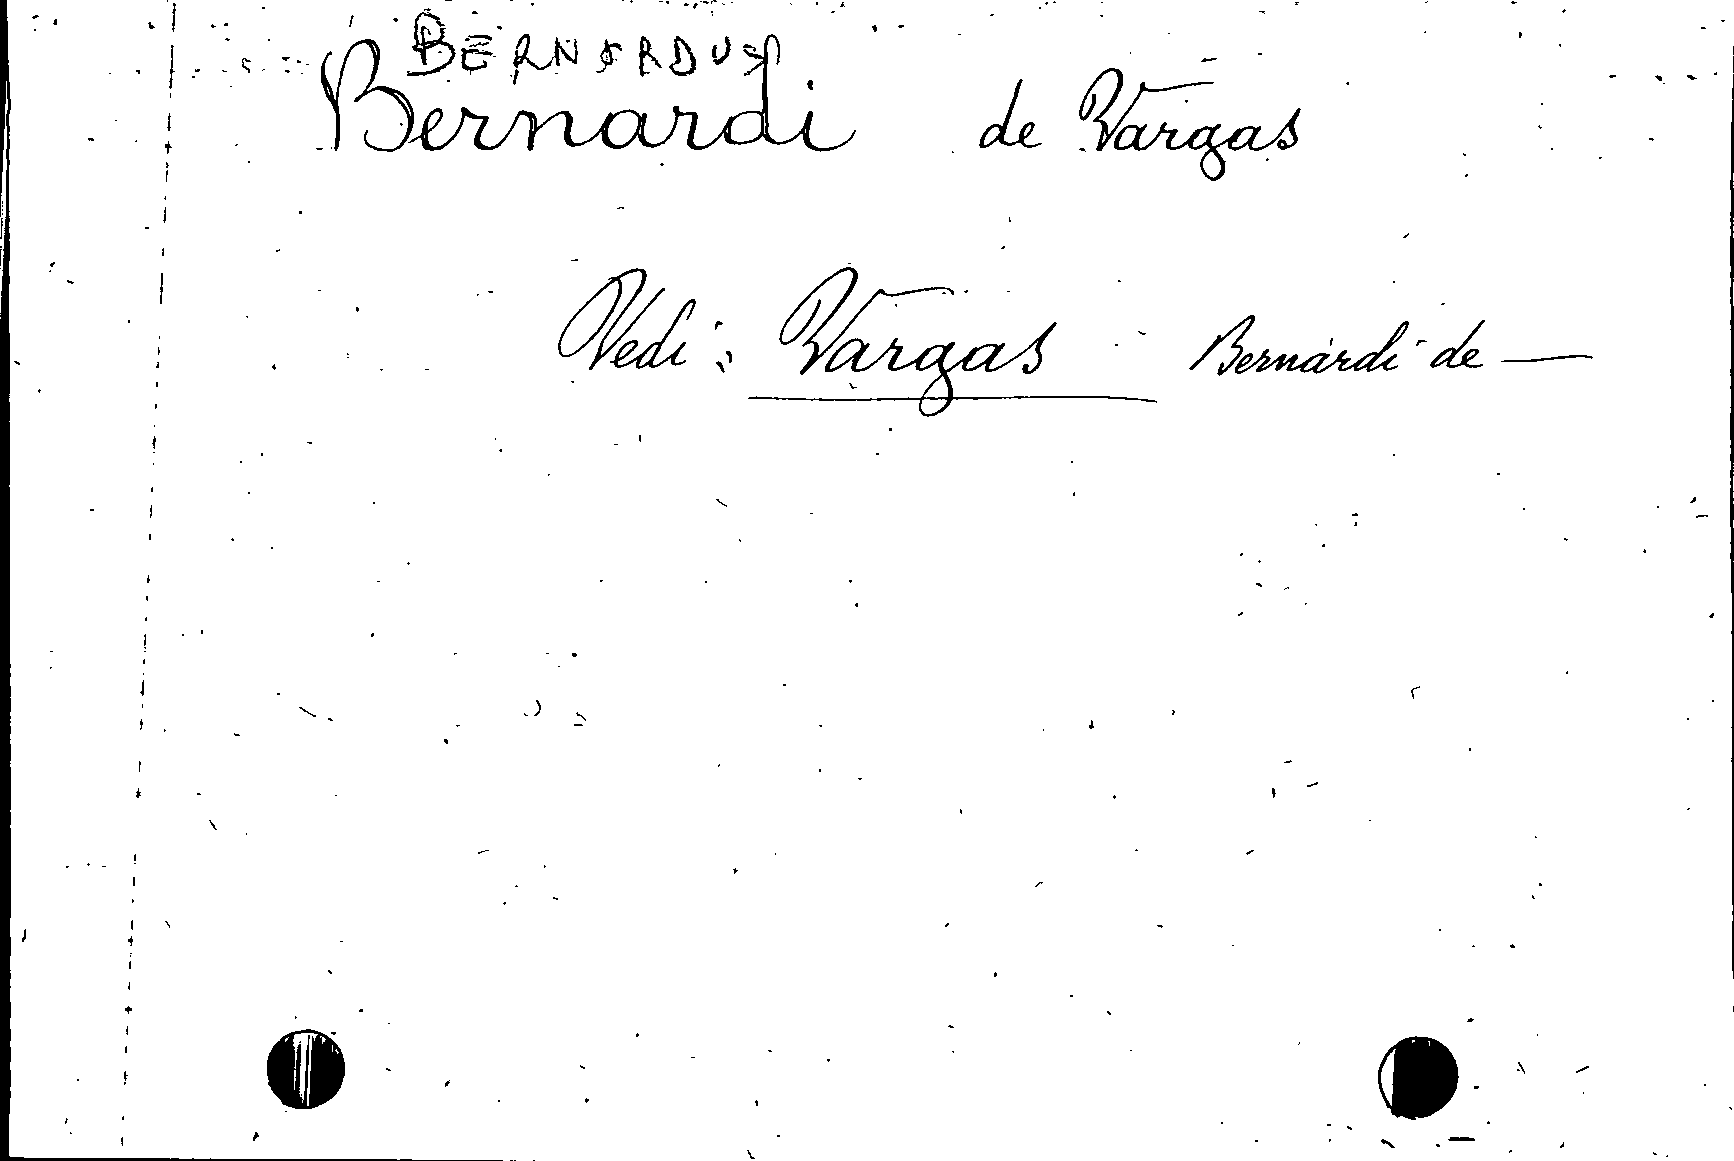 BERNARDUS
Bernardi de Vargas
Vedi: Vargas Bernardi de —